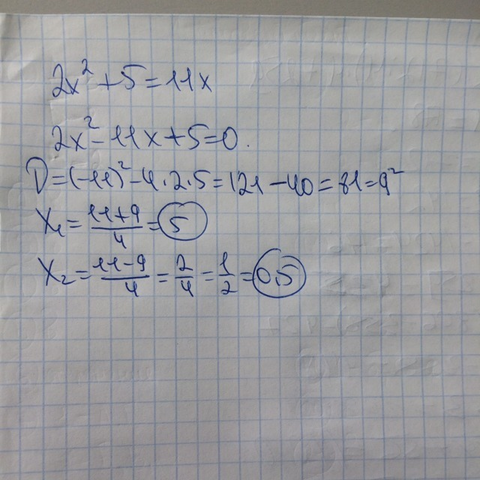 2x² + 5 = 11x
2x² - 11x + 5 = 0.
D = (-11)² - 4·2·5 = 121 - 40 = 81 = 9²
x₁ = (11+9)/4 = 5
x₂ = (11-9)/4 = 2/4 = 1/2 = 0,5